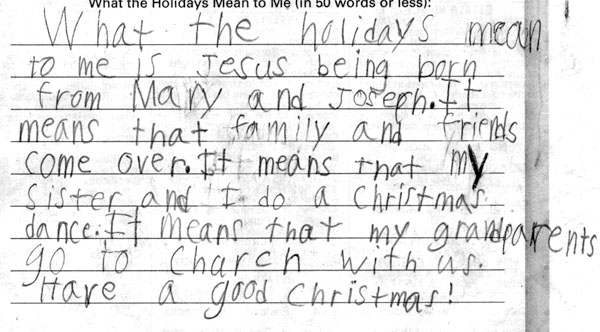 What the Holidays Mean to Me (in 50 words or less):
What the holidays mean
to me is Jesus being born
from Mary and Joseph. It
means that family and friends
come over. It means that my
sister and I do a Christmas
dance. It means that my grandparents
go to Charch with us.
Have a good christmas!